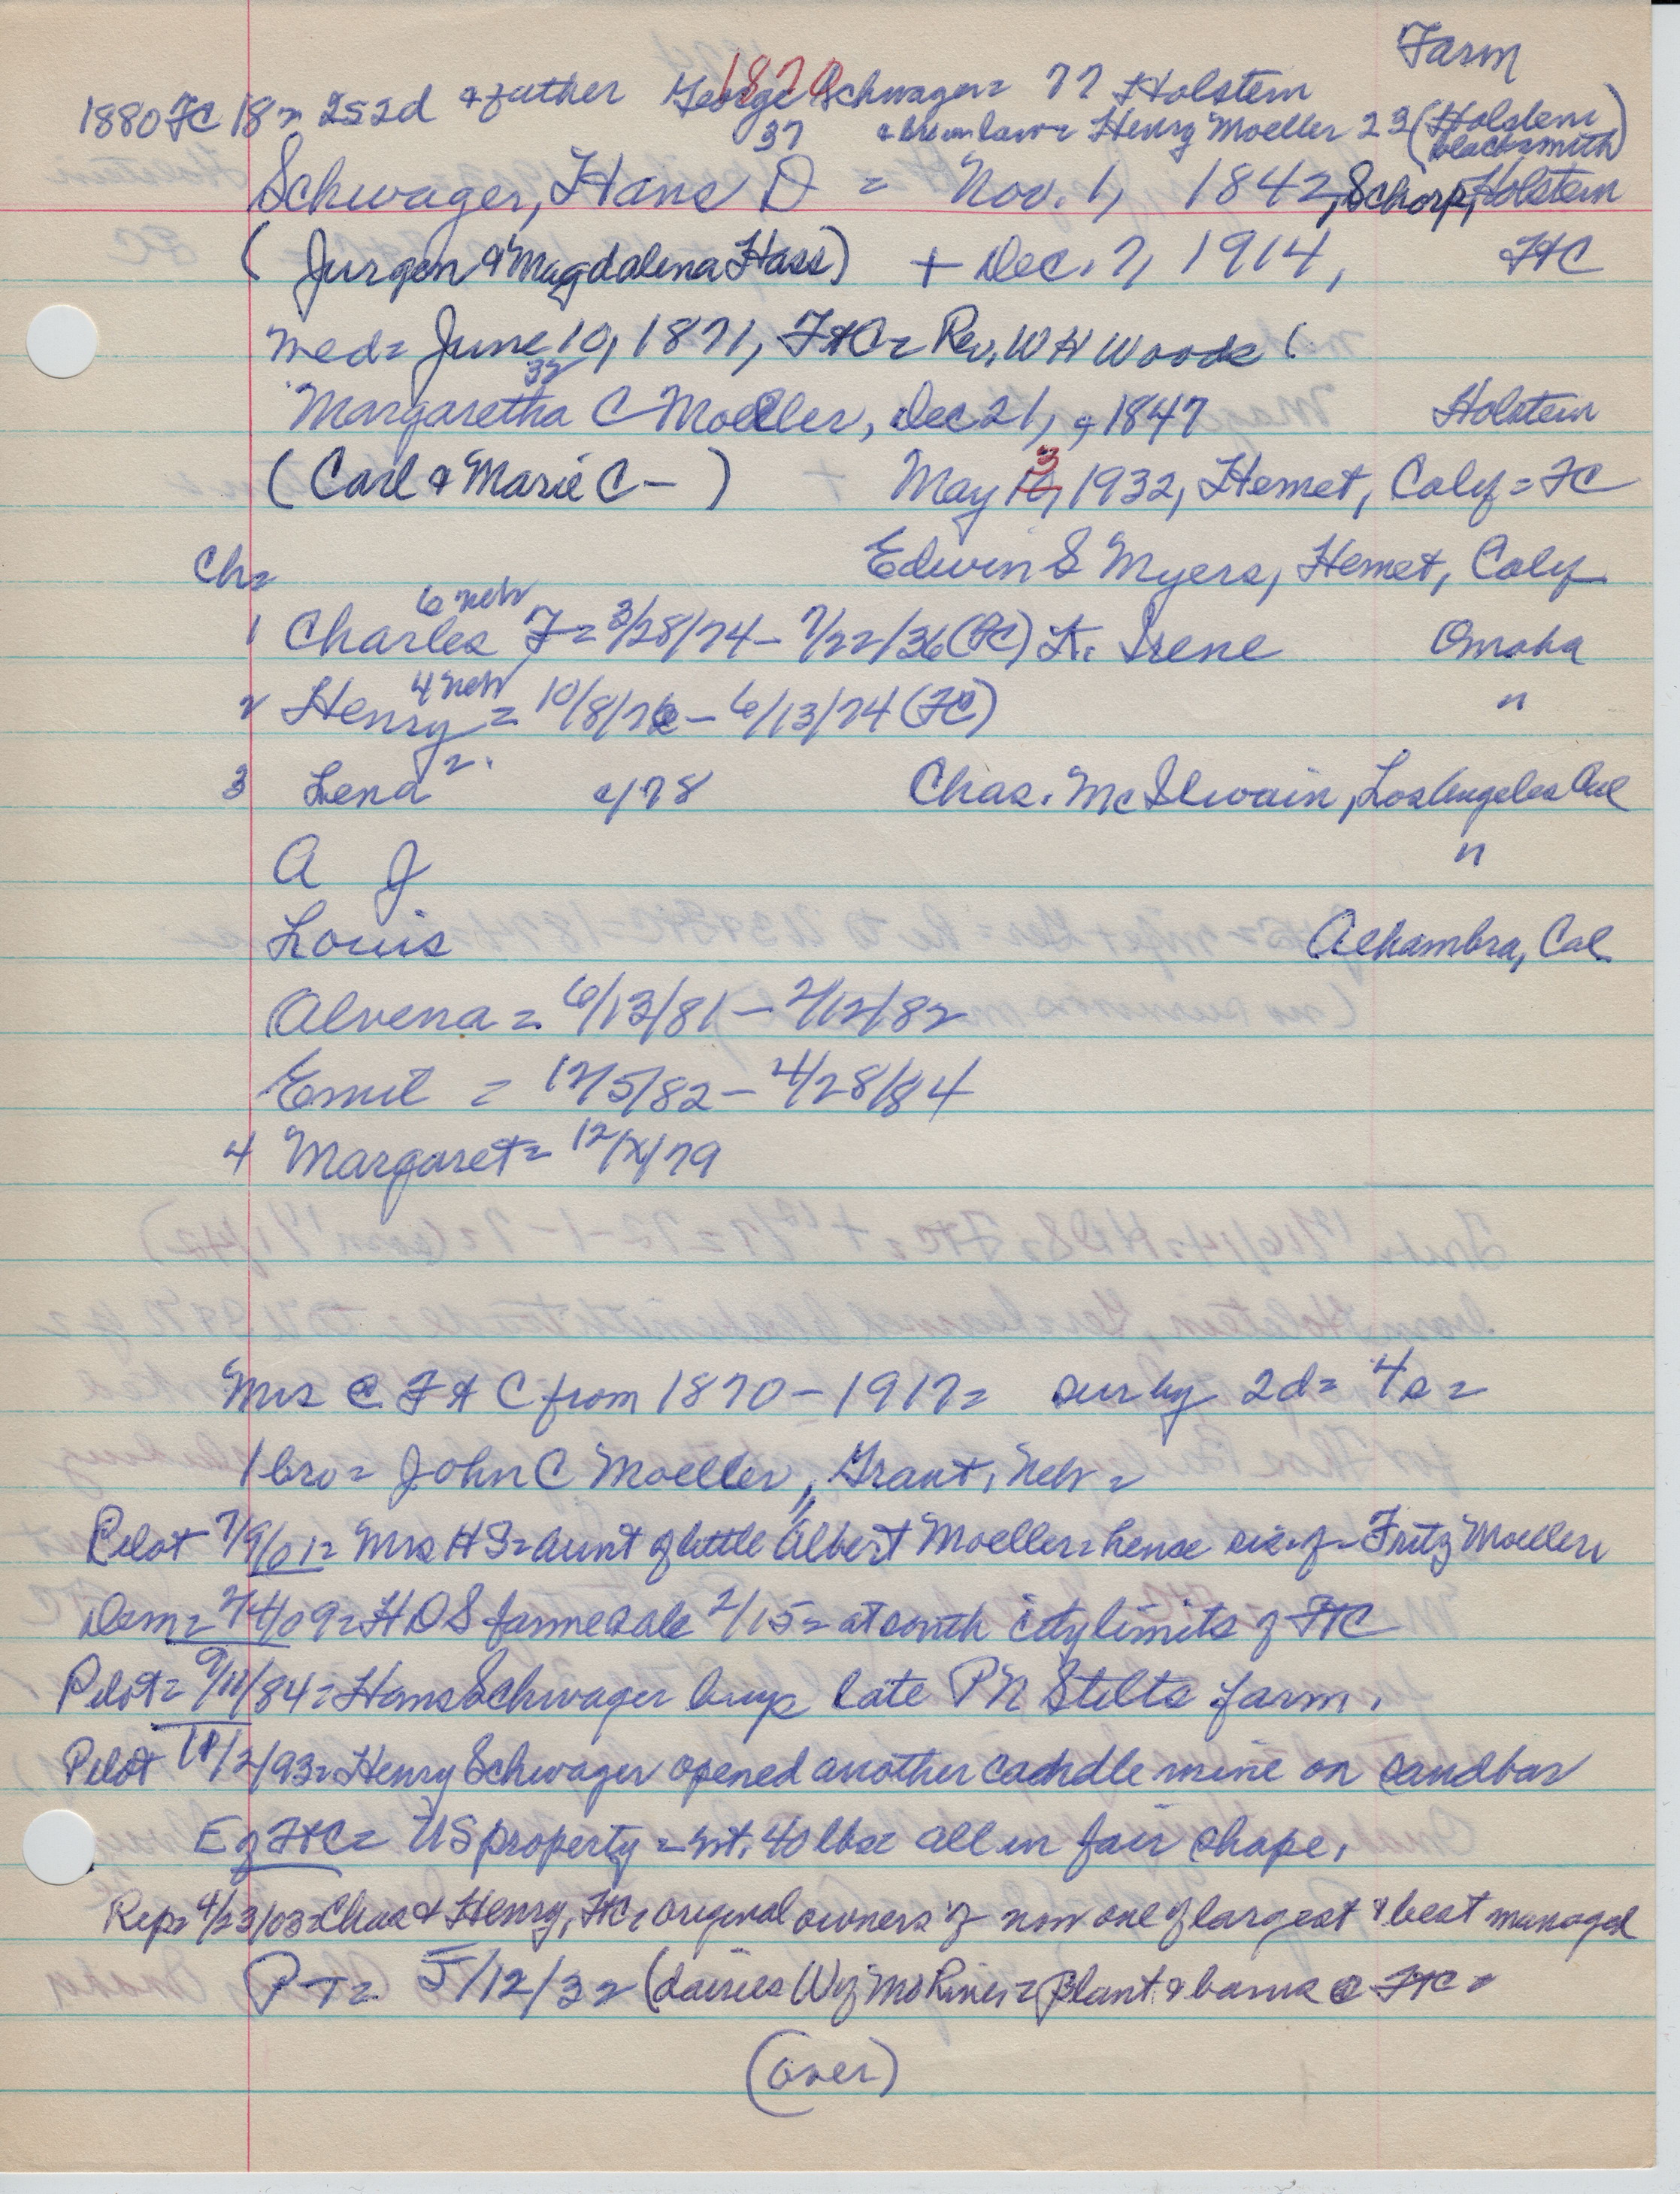 Farm
1870
1880 FC 18 = 2s 2d & father George Schwager = 77 Holstein
37 & bro in law = Henry Moeller 23 (Holstein blacksmith)
Schwager, Hans D = Nov. 1, 1842, Schorp, Holstein
(Jurgen & Magdalena Hass) + Dec. 7, 1914, FtC
med = June 10, 1871, FtC = Rev. W H Woods (
32
Margaretha C Moeller, Dec 21, 1847 Holstein
(Carl & Marie C - ) May 13, 1932, Hemet, Calif = FC
Edwin S Myers, Hemet, Calif
Ch =
6 neb
1 Charles F = 3/28/74 - 7/22/36 (FC) Irene Omaha
4 neb
2 Henry = 10/8/76 - 6/13/74 (FC) "
2.
3 Lena c/78 Chas. McIlwain, Los Angeles
A J "
Louis Alhambra, Cal
Alvena = 6/13/81 - 2/12/82
Emil = 12/5/82 - 4/28/84
4 Margaret = 12/x/79
Mrs @ Ft C from 1870 - 1917 = sur by 2d = 4s =
1 bro = John C Moeller, Grant, Neb =
Pilot 7/9/01 = Mrs H S = aunt of little Albert Moeller = hense sis of = Fritz Moeller
Dem = 2/4/09 = H D S farm sale 2/15 = at south city limits of FtC
Pilot = 9/11/84 = Hans Schwager buys late P N Stilts farm.
Pilot 11/2/93 = Henry Schwager opened another candle mine on sandbar
E of FtC = US property = wt. 40 lbs = all in fair shape.
Rep = 4/23/03 = Chas & Henry, FtC, original owners of now one of largest & best managed
PT = 5/12/32 (dairies W of Mo River = plant & barns @ FtC =
(over)